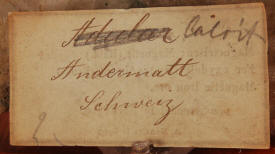 Adular Calcit
Andermatt
Schweiz